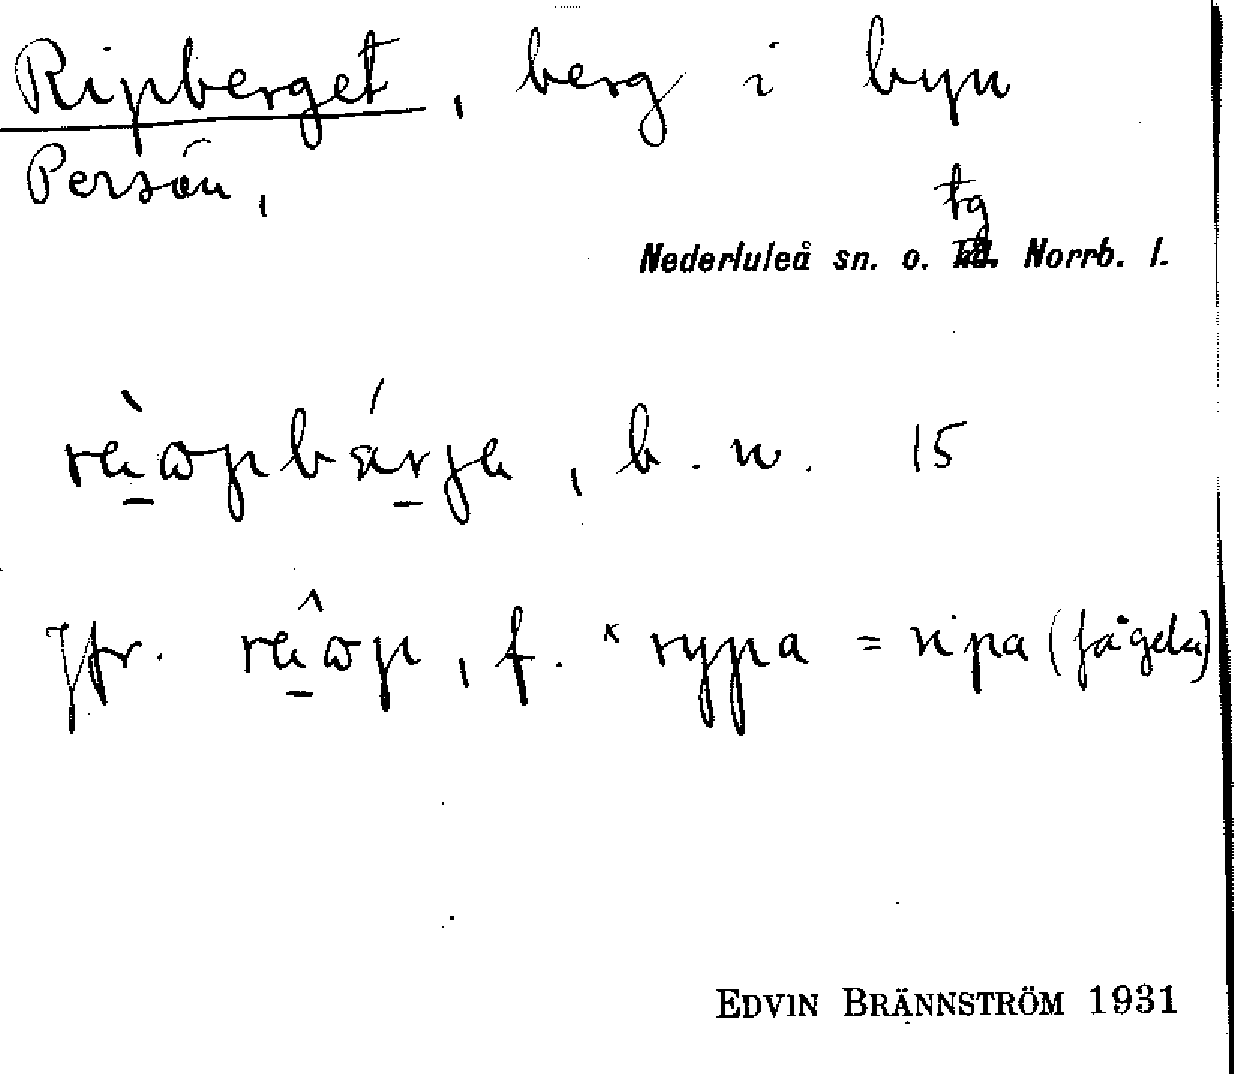 Ripberget, berg i byn
Persön,
tg
Nederluleå sn. o. Norrb. l.
b. n. 15
Jfr. f. *rypa = ripa (fågeln)
EDVIN BRÄNNSTRÖM 1931